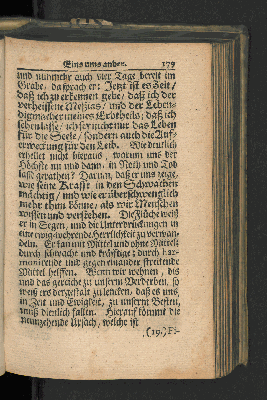 Eins ums ander. 179
und nunmehr auch vier Tage bereit im
Grabe, da sprach er: Jetzt ist es Zeit/
daß ich zu erkennen gebe/ daß ich der
verheissene Messias/ und der Leben-
digmacher meines Erbtheils; daß ich
schencke/ ich sei nicht nur das Leben
für die Seele/ sondern auch die Auf-
erweckung für den Leib. Wie deutlich
erhellet nicht hieraus, warum uns der
Höchste nu und dann, in Noth und Tod
läßst gerathen? Darum, daß er uns zeige,
wie seine Krafft in den Schwachen
mächtig/ und wie er überschwenglich
mehr thun könne/ als wir Menschen
wissen und verstehen. Die Flüche weiß
er in Segen, und die Unterdrückungen in
eine ewigwährende Herrlichkeit zu verwan-
deln. Er kan mit Mittel und ohne Mittel;
durch schwache und kräfftige; durch har-
monirende und gegen einander streitende
Mittel helffen. Wenn wir wehnen, diß
und das gerathe zu unserm Verderben, so
weiß ers dergestalt zu lencken, daß es uns,
in Zeit und Ewigkeit, zu unserm Besten,
muß dienlich fallen. Hierauf kömmt die
neunzehende Ursach, welche ist
(19.) Ei-